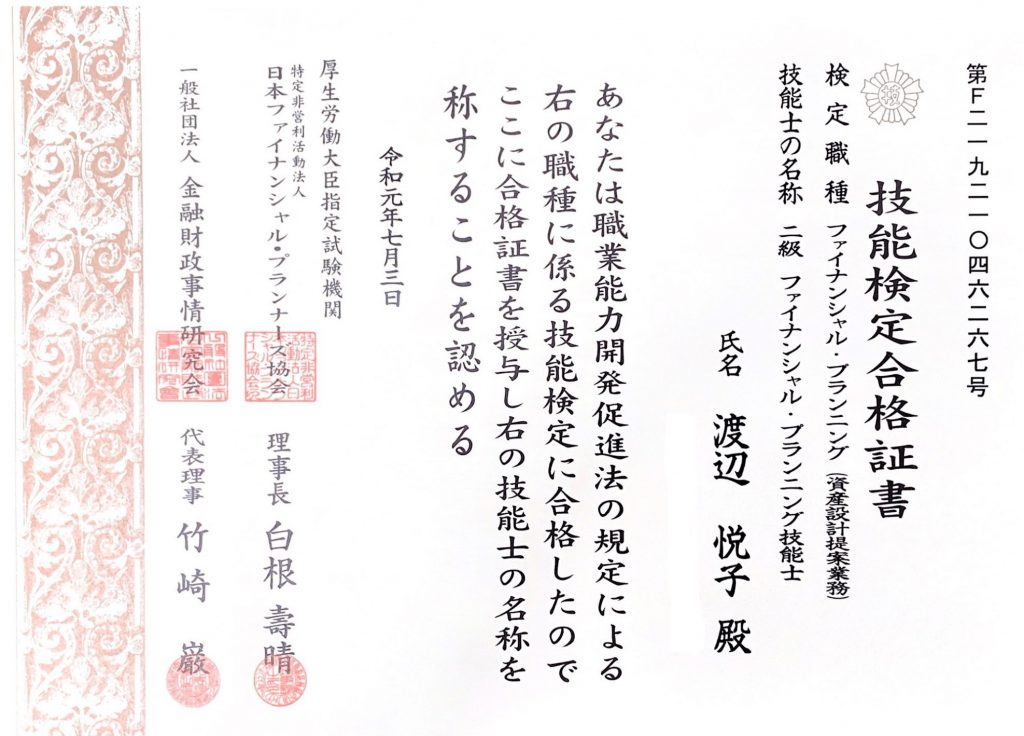 第F二一九二一〇四六二二六七号
技能検定合格証書
検定職種 ファイナンシャル・プランニング(資産設計提案業務)
技能士の名称 二級 ファイナンシャル・プランニング技能士
氏名 渡辺 悦子 殿
あなたは職業能力開発促進法の規定による
右の職種に係る技能検定に合格したので
ここに合格証書を授与し右の技能士の名称を
称することを認める
令和元年七月三日
厚生労働大臣指定試験機関
特定非営利活動法人
日本ファイナンシャル・プランナーズ協会 理事長 白根 壽晴
一般社団法人 金融財政事情研究会 代表理事 竹崎 巌